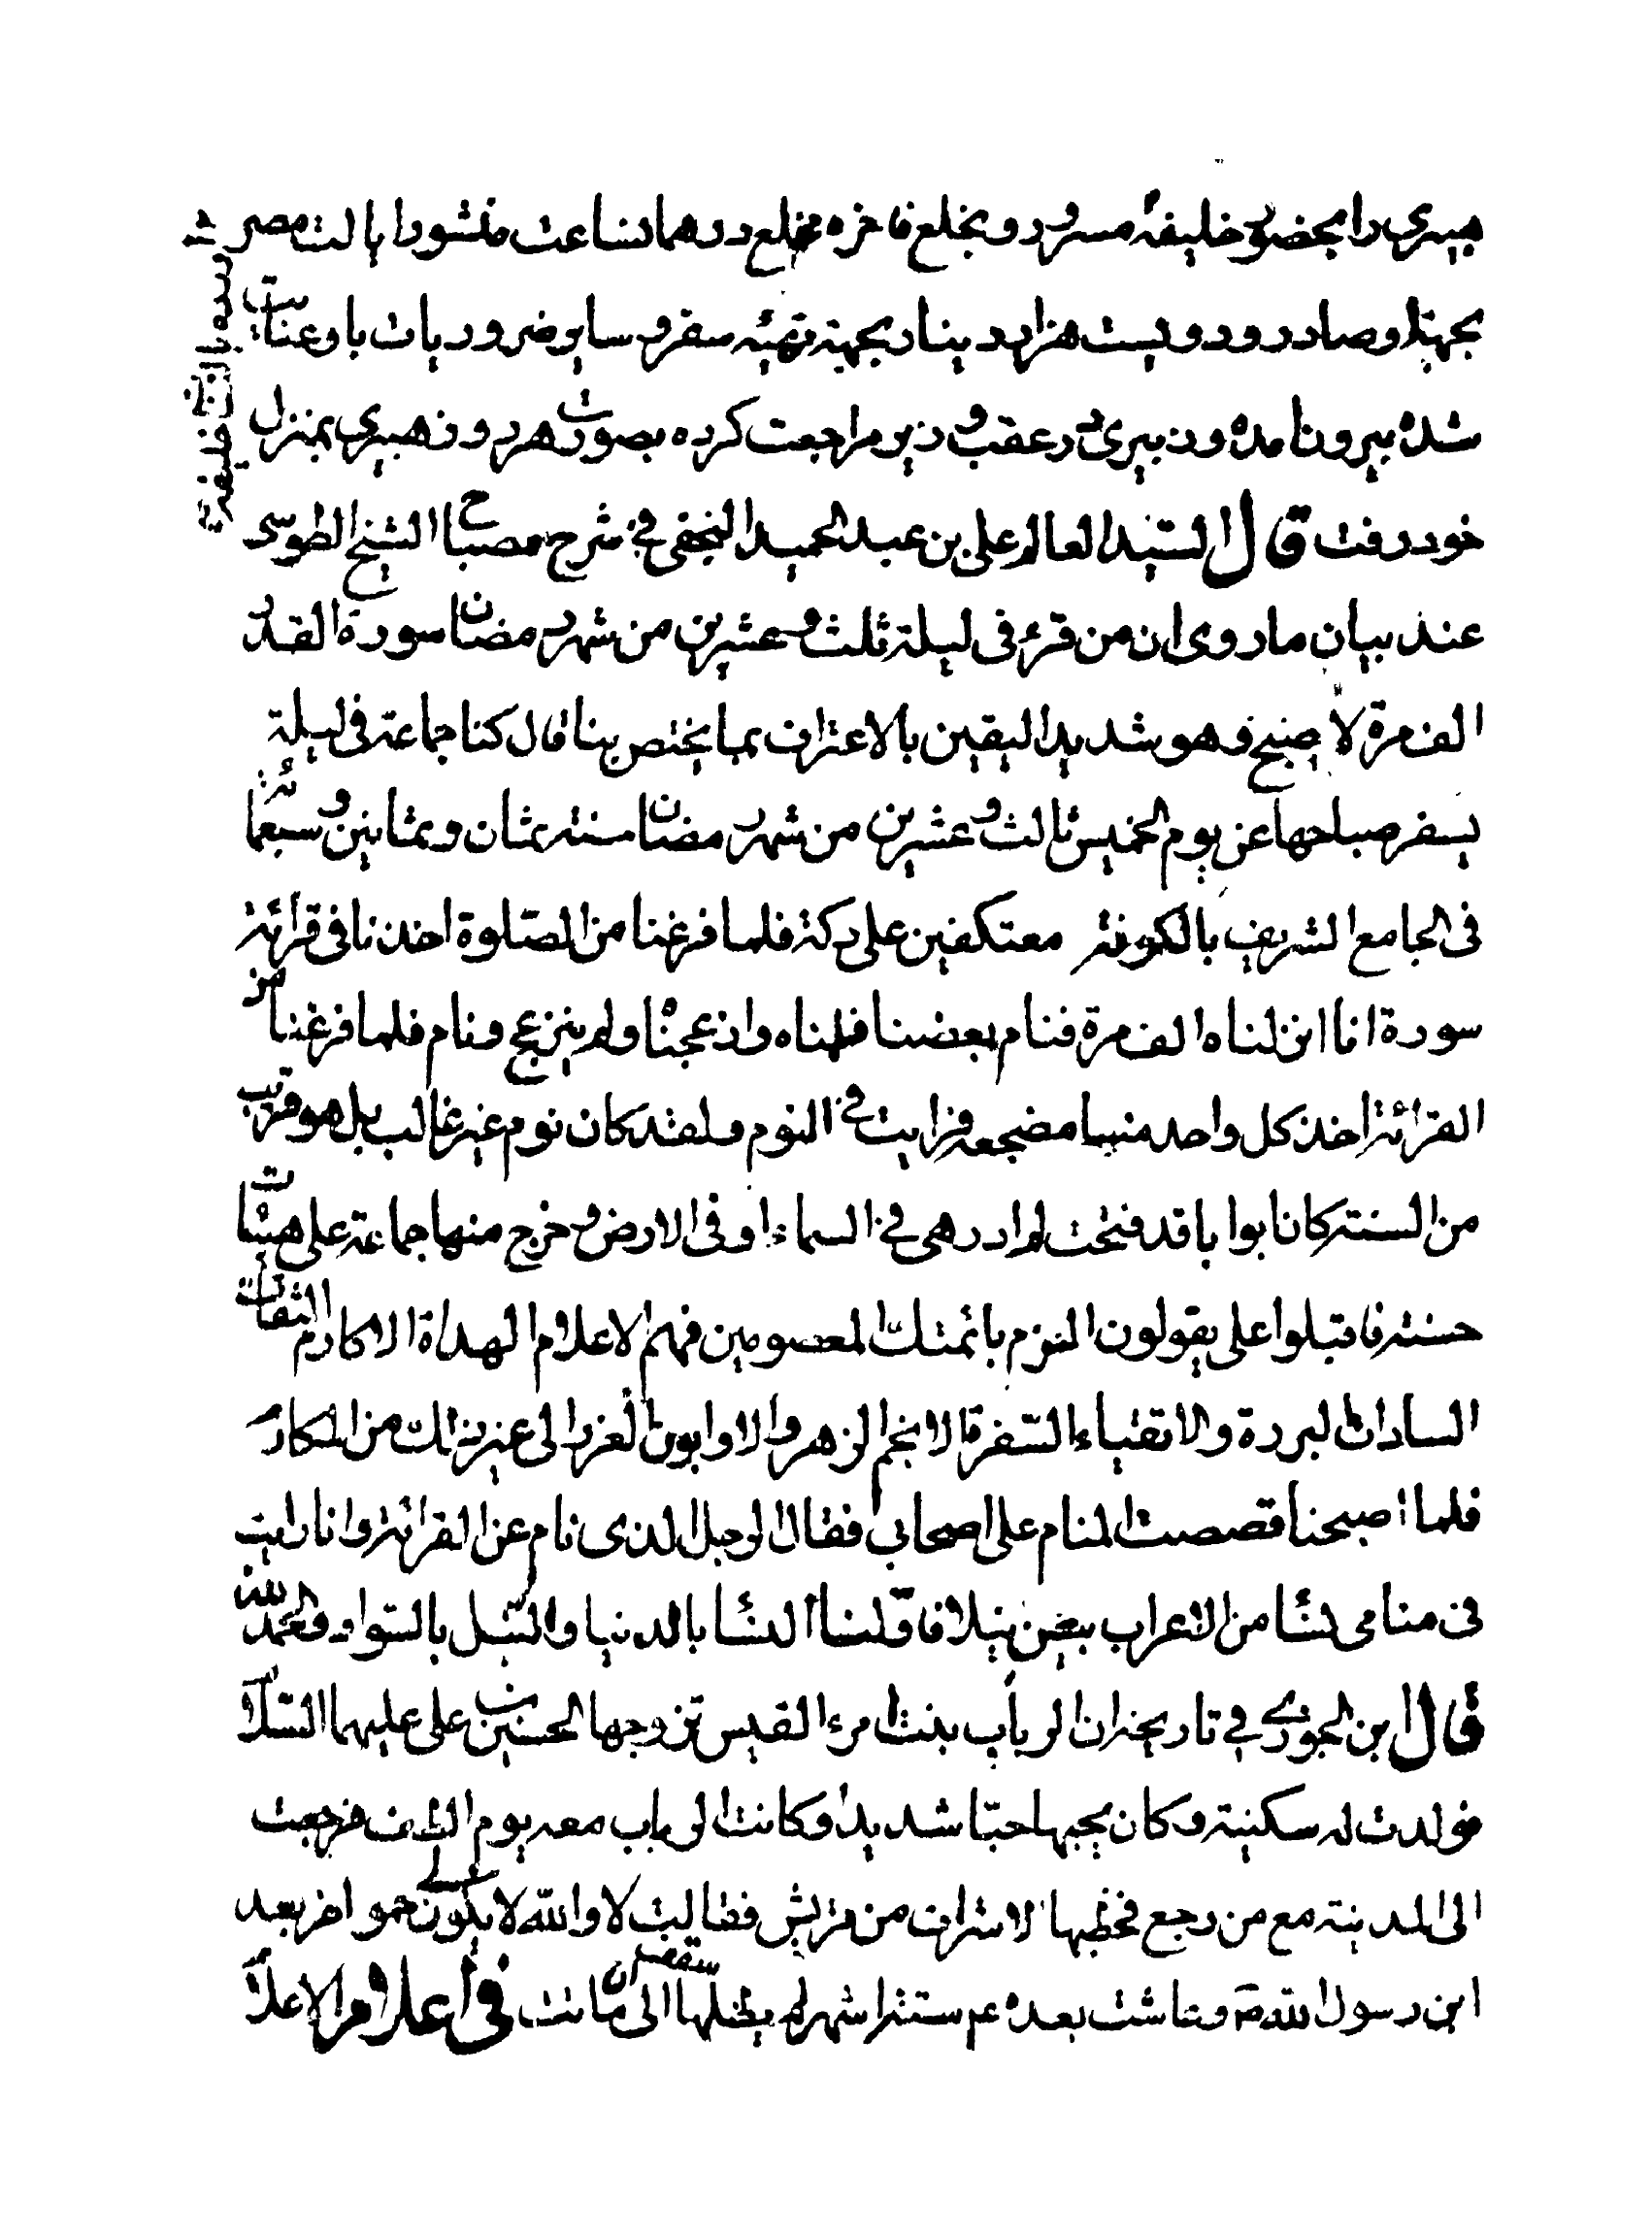 هبیری را بحضور خلیفه مسرور و بخلع فاخره مخلع در همان ساعت منشور ایالت مصر
بجهة او صادر و دویست هزار دینار بجهة تهیئه سفر و سایر ضروریات باو عنایت
شده بیرون امده وزبیری در عقب وزیر مراجعت کرده بصورت هر دو نزد هبیری بمنزل
خود رفت قال السید العالم علی بن عبد الحمید النجفی فی شرح مصباح الشیخ الطوسی
عند بیان ما روی ان من قرء فی لیلة ثلث و عشرین من شهر رمضان سورة القدر
الف مرة لاصبح و هو شدید الیقین بالاعتراف بما یختص بنا قال کنا جماعة فی لیلة
یسفر صباحها عن یوم الخمیس ثالث و عشرین من شهر رمضان سنة ثمان و ثمانین و سبعمائة
فی الجامع الشریف بالکوفة معتکفین علی دکة فلما فرغنا من الصلوة اخذنا فی قرائة
سورة انا انزلناه الف مرة فنام بعضنا فلمناه و ازعجناه ولم ینزعج و نام فلما فرغنا من
القرائة اخذ کل واحد منا مضجعه فرایت فی النوم و لقد کان نوم غیر غالب بل هو قریب
من السنة کان ابوابا قد فتحت لم ادر هی فی السماء او فی الارض و خرج منها جماعة علی هیئات
حسنة فاقبلوا علی یقولون التزم بائمتک المعصومین فهم الاعلام الهداة الاکارم الثقات
السادات البررة والاتقیاء السفرة الانجم الزهر والاوابون الغرر الی غیر ذلک من المکارم
فلما اصبحنا قصصت المنام علی اصحابی فقال الرجل الذی نام عن القرائة وانا رایت
فی منامی نساء من الاعراب یبعن نیلا فاولنا النساء بالدنیا والنیل بالسواد والحمد لله
قال ابن الجوزی فی تاریخه ان الرباب بنت امرء القیس تزوجها الحسین بن علی علیهما السلام
فولدت له سکینة و کان یحبها حبّا شدیدا و کانت الرباب معه یوم الطف فرجعت
الی المدینة مع من رجع فخطبها الاشراف من قریش فقالت لا والله لا یکون حمو اخر بعد
ابن رسول الله ص و عاشت بعده ع م ستة اشهر لم یظلها سقف الی ان ماتت فی اعلام الاعلام